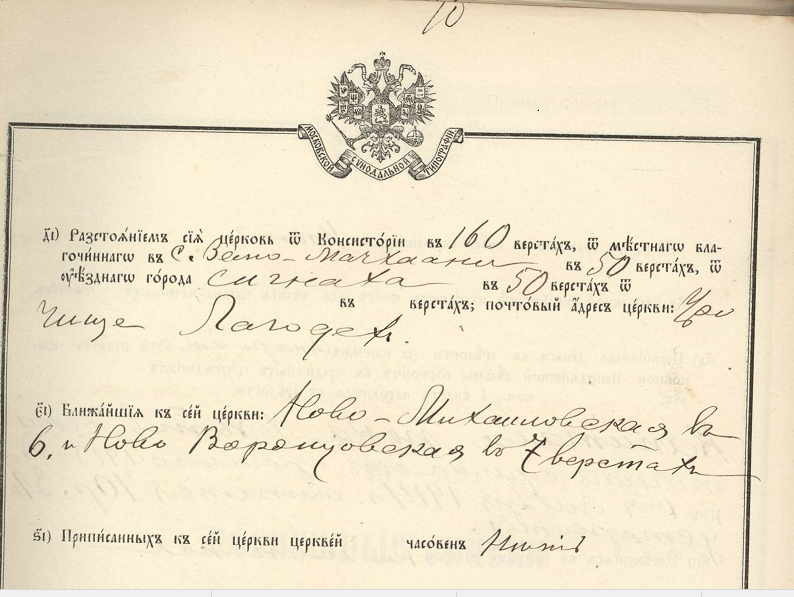 10
МОСКОВСКОЙ СѴНОДАЛЬНОЙ ТИПОГРАФІИ
д҃і) Разстоѧ́ніемъ сіѧ̀ це́рковь ѿ Консисто́ріи въ 160 верста́хъ, ѿ мѣ́стнагѡ бла-
гочи́ннагѡ въ с. Земо-Мачхаани въ 50 верста́хъ, ѿ
ᲂу҆ѣ́зднагѡ го́рода Сигнаха въ 50 верста́хъ ѿ
въ верста́хъ; почто́вый а́дресъ це́ркви: Уро
чище Лагодехи.
є҃і) Ближа́йшіѧ къ се́й це́ркви: Ново-Михайловская въ
6, и Ново Воронцовская въ 7 верстахъ
ѕ҃і) Припи́санныхъ къ се́й це́ркви церкве́й часо́венъ